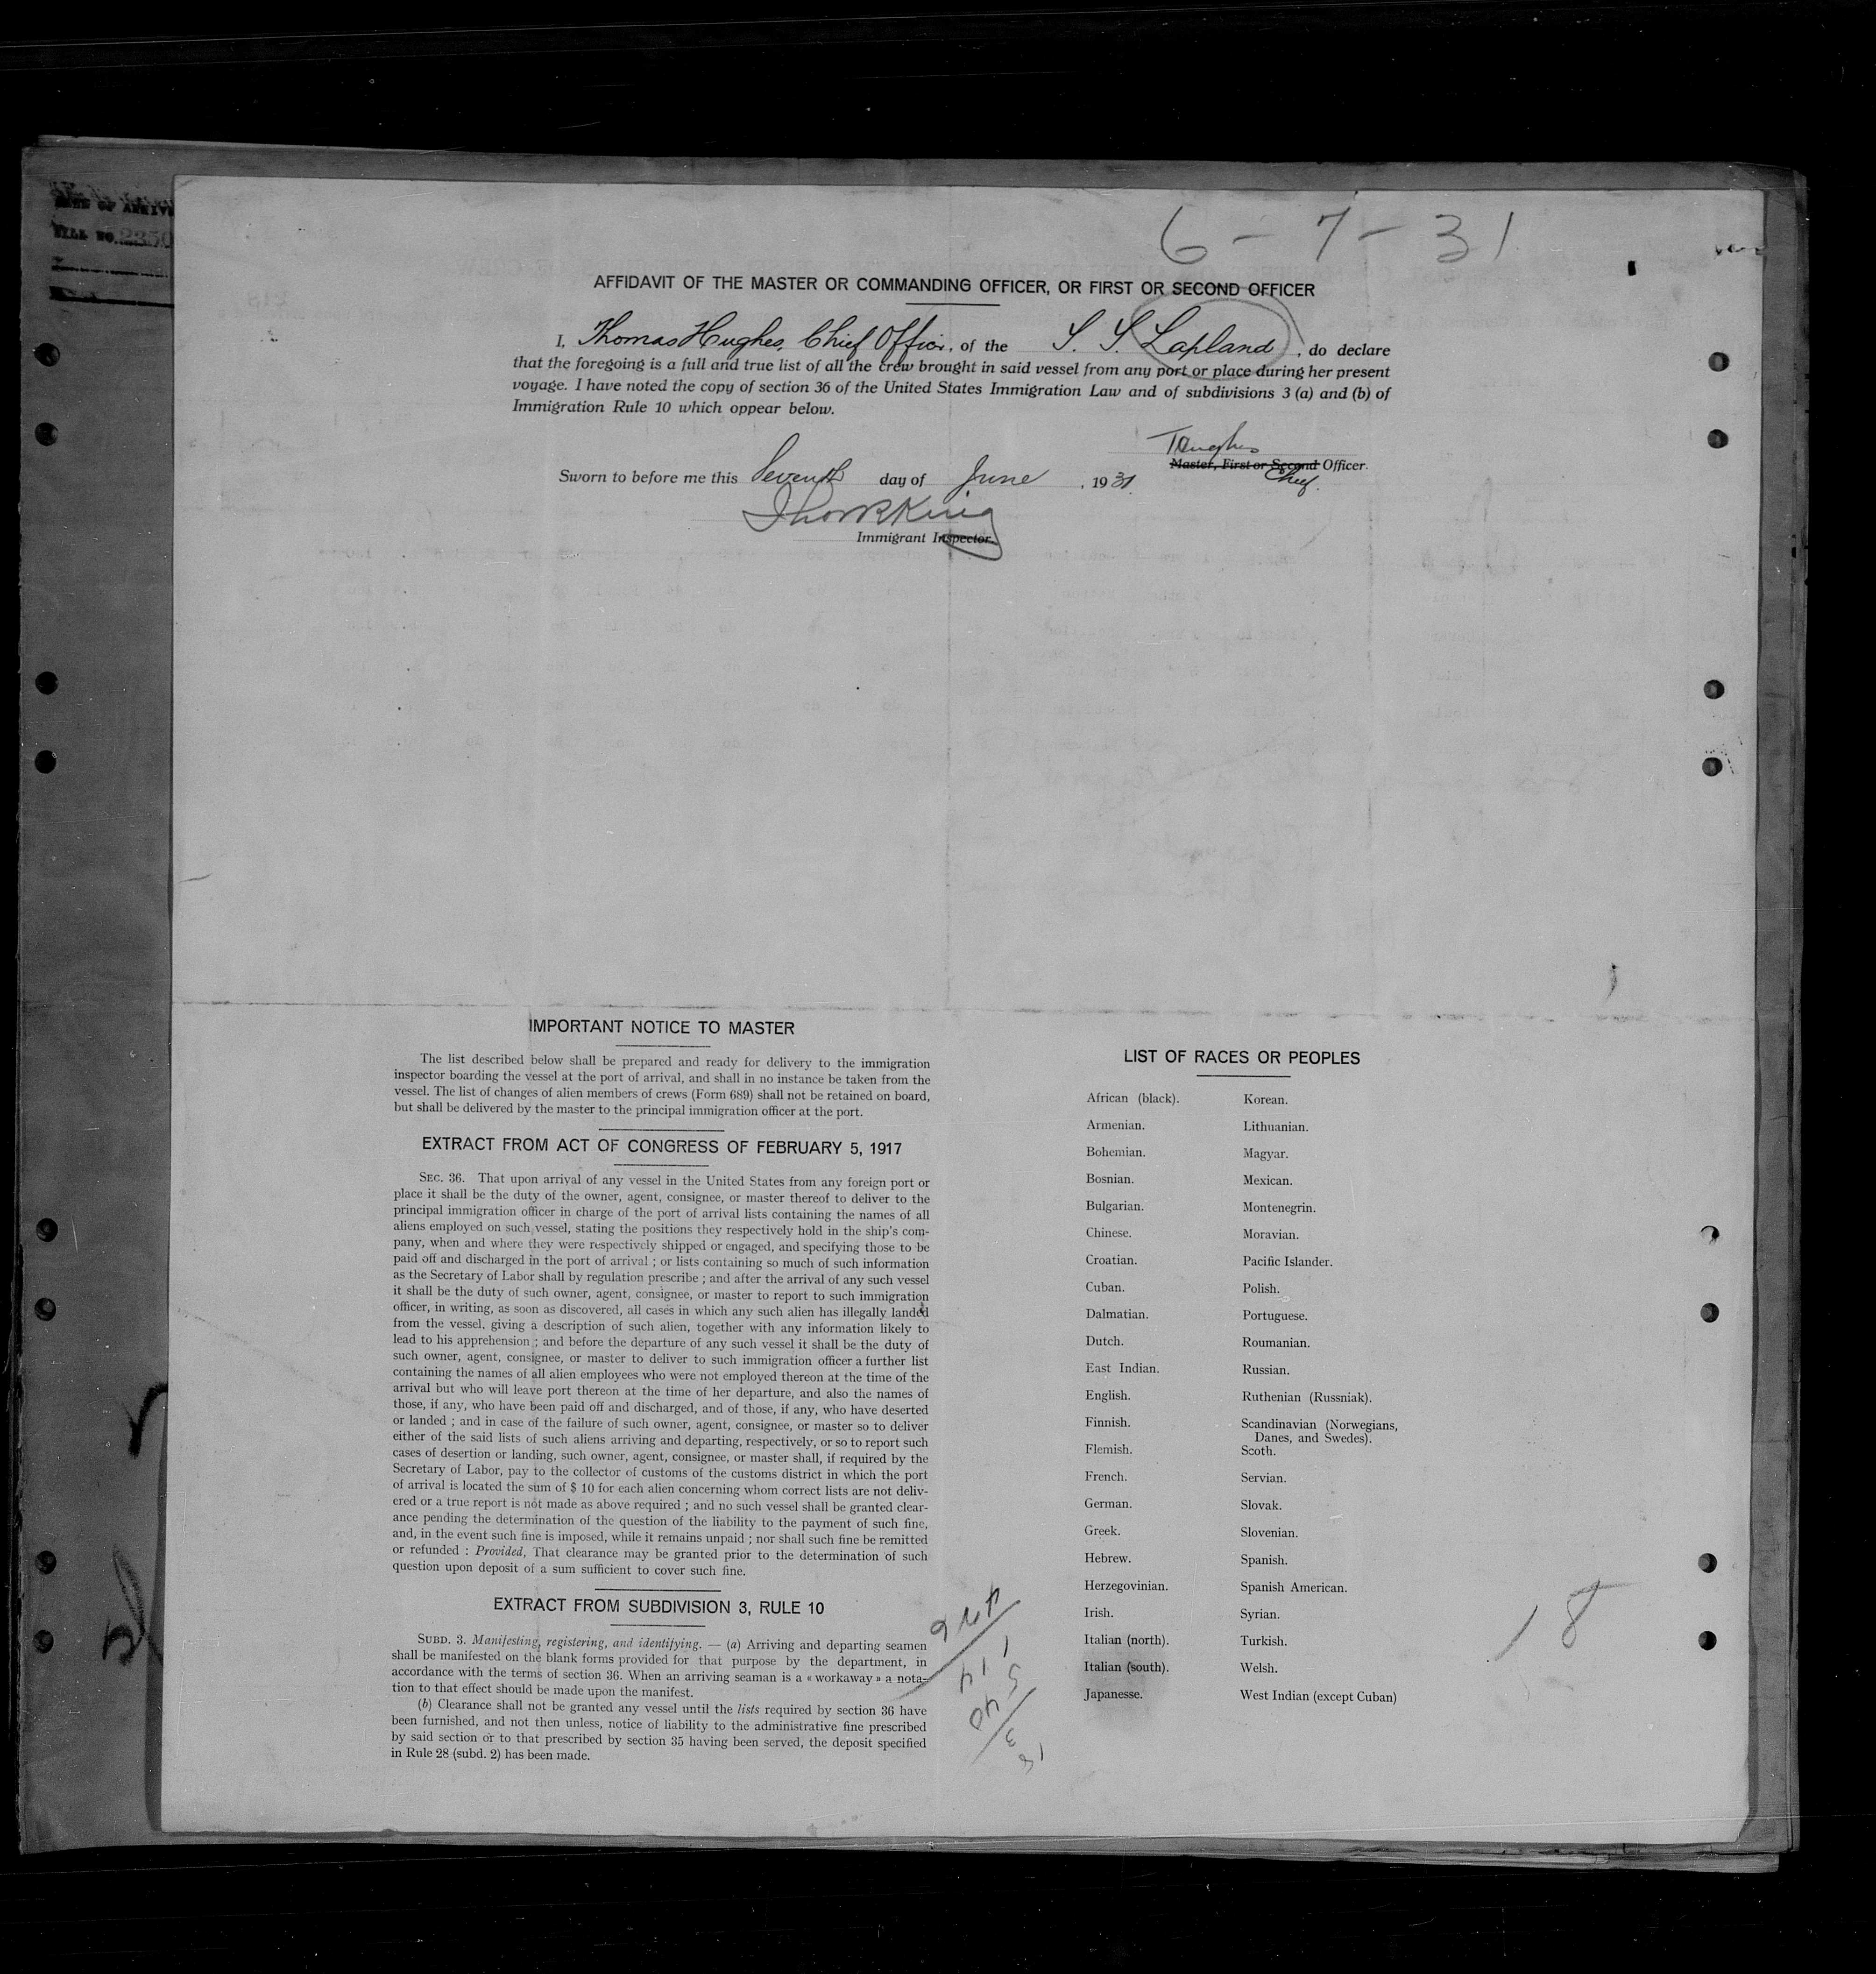 FILL NO. 2350
6 - 7 - 31
AFFIDAVIT OF THE MASTER OR COMMANDING OFFICER, OR FIRST OR SECOND OFFICER
I, Thomas Hughes, Chief Officer, of the S. S. Lapland, do declare
that the foregoing is a full and true list of all the crew brought in said vessel from any port or place during her present
voyage. I have noted the copy of section 36 of the United States Immigration Law and of subdivisions 3 (a) and (b) of
Immigration Rule 10 which oppear below.
THughes
Master, First or Second Officer.
Chief.
Sworn to before me this Seventh day of June, 1931.
King
Immigrant Inspector.
IMPORTANT NOTICE TO MASTER
The list described below shall be prepared and ready for delivery to the immigration
inspector boarding the vessel at the port of arrival, and shall in no instance be taken from the
vessel. The list of changes of alien members of crews (Form 689) shall not be retained on board,
but shall be delivered by the master to the principal immigration officer at the port.
EXTRACT FROM ACT OF CONGRESS OF FEBRUARY 5, 1917
SEC. 36. That upon arrival of any vessel in the United States from any foreign port or
place it shall be the duty of the owner, agent, consignee, or master thereof to deliver to the
principal immigration officer in charge of the port of arrival lists containing the names of all
aliens employed on such vessel, stating the positions they respectively hold in the ship's com-
pany, when and where they were respectively shipped or engaged, and specifying those to be
paid off and discharged in the port of arrival ; or lists containing so much of such information
as the Secretary of Labor shall by regulation prescribe ; and after the arrival of any such vessel
it shall be the duty of such owner, agent, consignee, or master to report to such immigration
officer, in writing, as soon as discovered, all cases in which any such alien has illegally landed
from the vessel, giving a description of such alien, together with any information likely to
lead to his apprehension ; and before the departure of any such vessel it shall be the duty of
such owner, agent, consignee, or master to deliver to such immigration officer a further list
containing the names of all alien employees who were not employed thereon at the time of the
arrival but who will leave port thereon at the time of her departure, and also the names of
those, if any, who have been paid off and discharged, and of those, if any, who have deserted
or landed ; and in case of the failure of such owner, agent, consignee, or master so to deliver
either of the said lists of such aliens arriving and departing, respectively, or so to report such
cases of desertion or landing, such owner, agent, consignee, or master shall, if required by the
Secretary of Labor, pay to the collector of customs of the customs district in which the port
of arrival is located the sum of $ 10 for each alien concerning whom correct lists are not deliv-
ered or a true report is not made as above required ; and no such vessel shall be granted clear-
ance pending the determination of the question of the liability to the payment of such fine,
and, in the event such fine is imposed, while it remains unpaid ; nor shall such fine be remitted
or refunded : Provided, That clearance may be granted prior to the determination of such
question upon deposit of a sum sufficient to cover such fine.
EXTRACT FROM SUBDIVISION 3, RULE 10
SUBD. 3. Manifesting, registering, and identifying. — (a) Arriving and departing seamen
shall be manifested on the blank forms provided for that purpose by the department, in
accordance with the terms of section 36. When an arriving seaman is a « workaway » a nota-
tion to that effect should be made upon the manifest.
(b) Clearance shall not be granted any vessel until the lists required by section 36 have
been furnished, and not then unless, notice of liability to the administrative fine prescribed
by said section or to that prescribed by section 35 having been served, the deposit specified
in Rule 28 (subd. 2) has been made.
LIST OF RACES OR PEOPLES
African (black).
Armenian.
Bohemian.
Bosnian.
Bulgarian.
Chinese.
Croatian.
Cuban.
Dalmatian.
Dutch.
East Indian.
English.
Finnish.
Flemish.
French.
German.
Greek.
Hebrew.
Herzegovinian.
Irish.
Italian (north).
Italian (south).
Japanesse.
Korean.
Lithuanian.
Magyar.
Mexican.
Montenegrin.
Moravian.
Pacific Islander.
Polish.
Portuguese.
Roumanian.
Russian.
Ruthenian (Russniak).
Scandinavian (Norwegians,
Danes, and Swedes).
Scoth.
Servian.
Slovak.
Slovenian.
Spanish.
Spanish American.
Syrian.
Turkish.
Welsh.
West Indian (except Cuban)
18